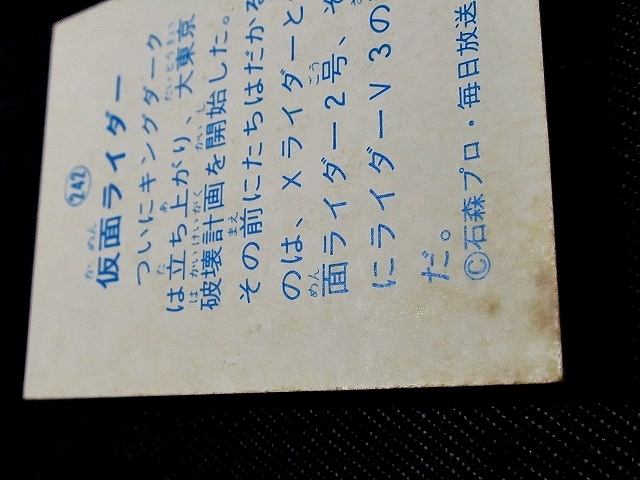 242
仮面ライダー
ついにキングダーク
は立ち上がり、大東京
破壊計画を開始した。
その前にたちはだかる
のは、Xライダーと
面ライダー2号、そ
にライダーV3の
だ。
©石森プロ・毎日放送